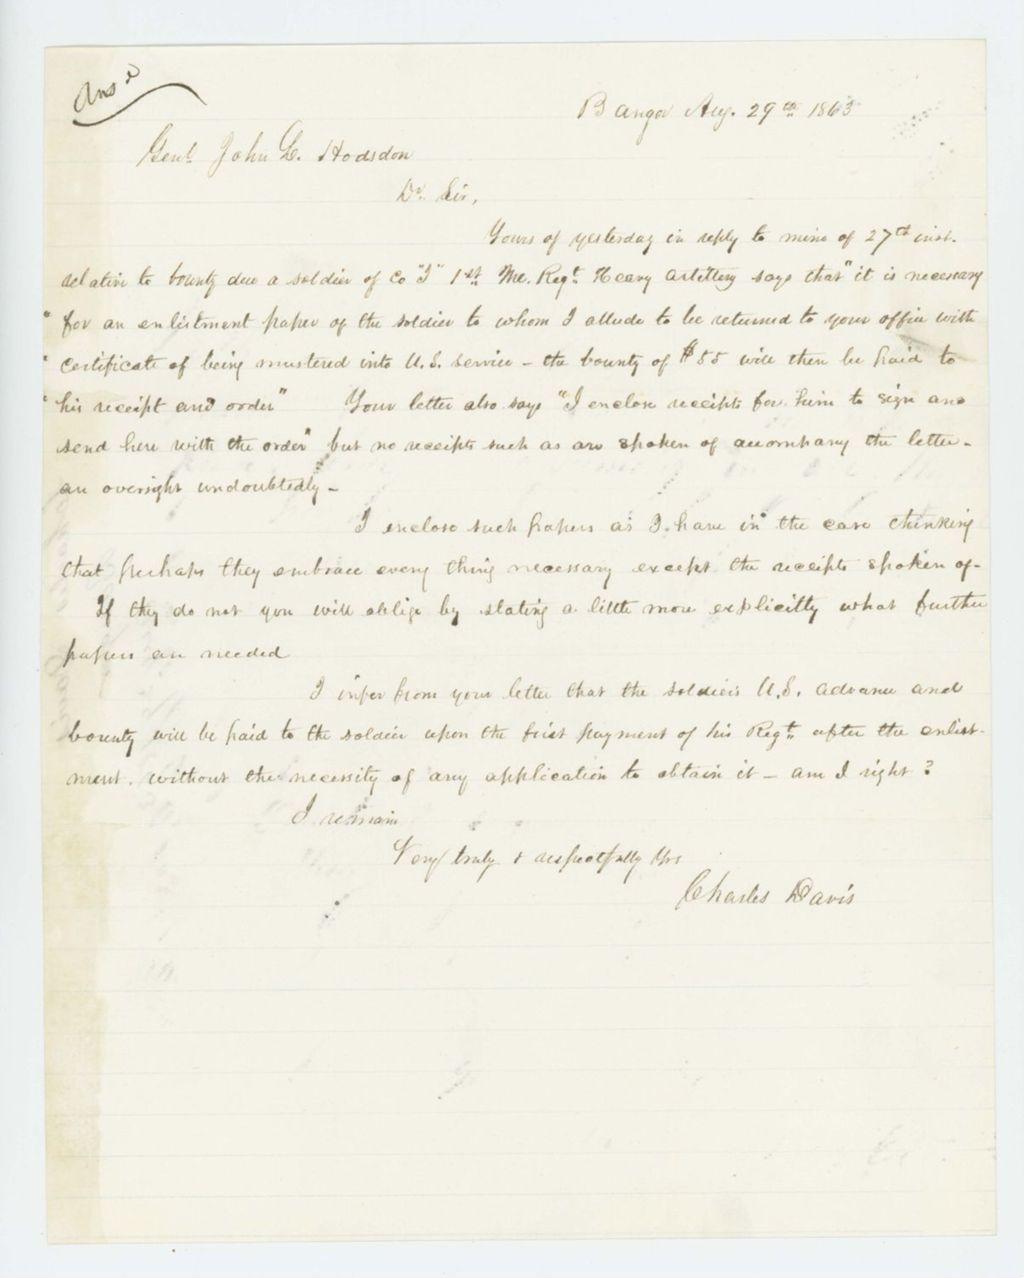 Ansd
Bangor Aug. 29th 1863
Genl. John L. Hodsdon
Dr. Sir,
Yours of yesterday in reply to mine of 27th inst.
relative to bounty due a soldier of Co "I" 1st Me. Regt. Heavy Artillery says that "it is necessary
" for an enlistment paper of the soldier to whom I allude to be returned to your office with
" certificate of being mustered into U.S. service - the bounty of $55 will then be paid to
" his receipt and order" Your letter also says "I enclose receipts for him to sign and
send here with the order" but no receipts such as are spoken of accompany the letter -
an oversight undoubtedly -
I enclose such papers as I have in the case thinking
that perhaps they embrace every thing necessary except the receipts spoken of -
If they do not you will oblige by stating a little more explicitly what further
papers are needed
I infer from your letter that the soldiers U.S. advance and
bounty will be paid to the soldier upon the first payment of his Regt. after the enlist-
ment. without the necessity of any application to obtain it - am I right?
I remain
Very truly & respectfully Yrs
Charles Davis